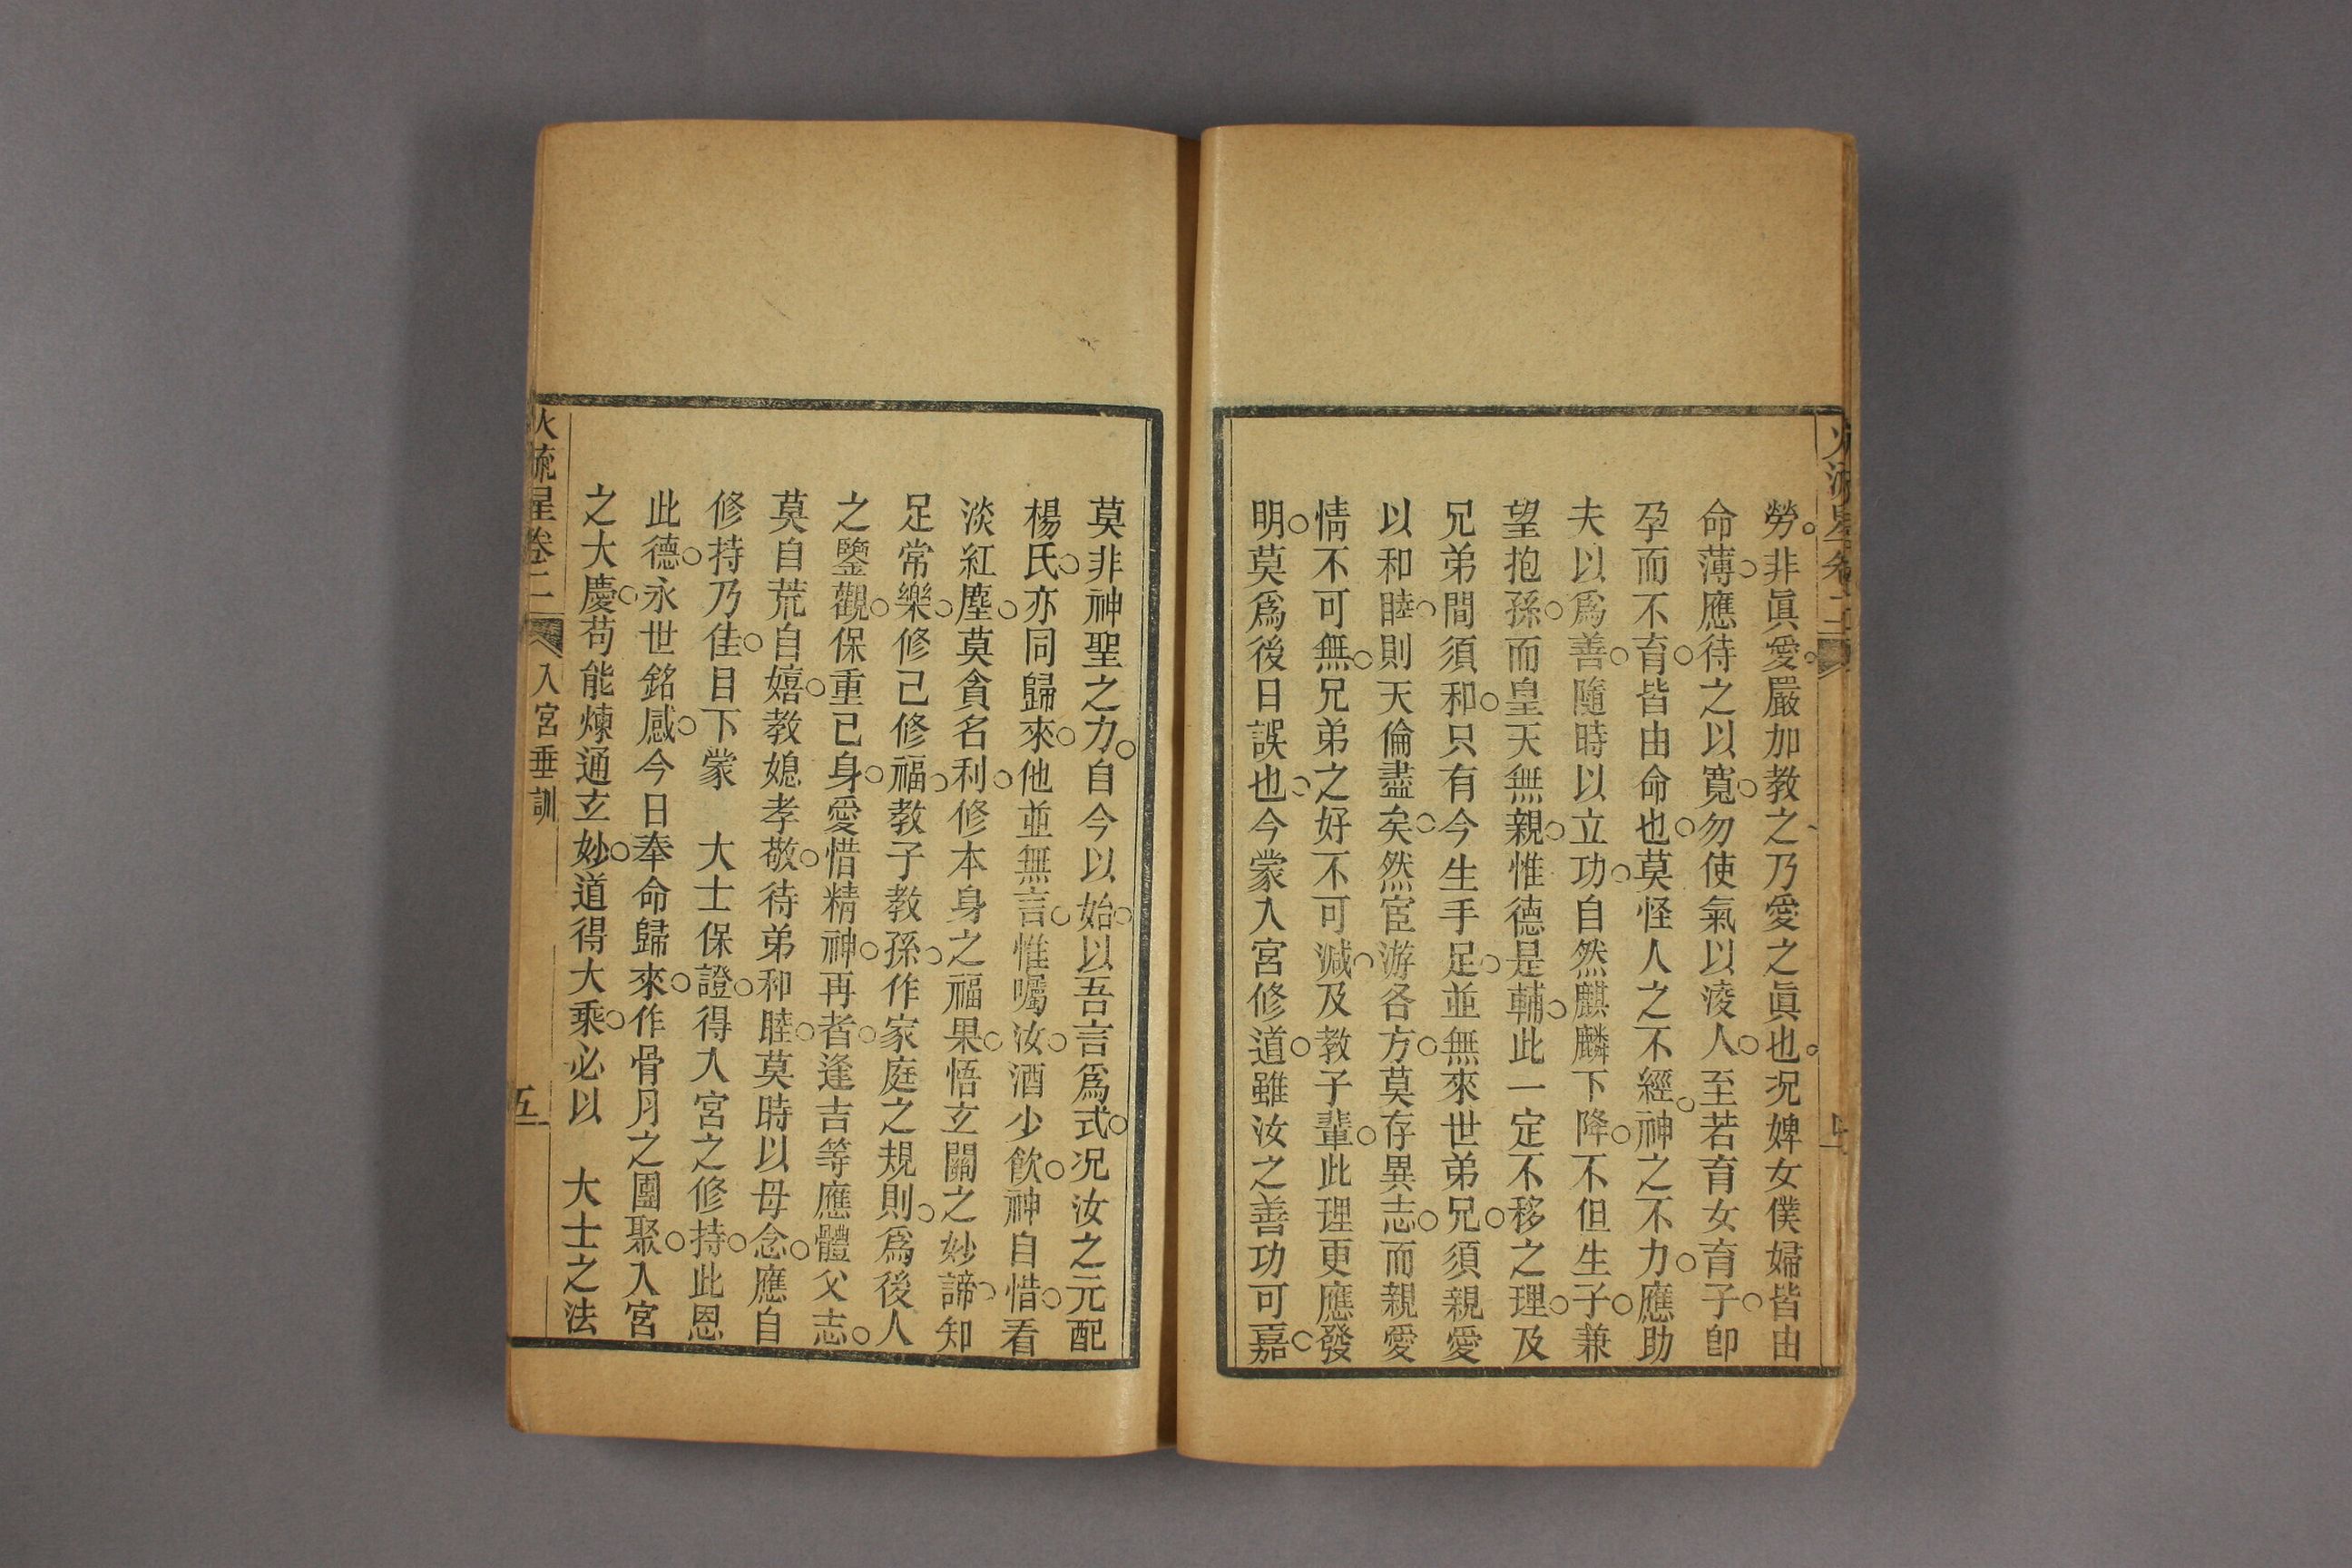 勞。非眞愛。嚴加教之、乃愛之眞也。况婢女僕婦皆由
命薄。應待之以寬。勿使氣以淩人。至若育女育子。卽
孕而不育。皆由命也。莫怪人之不經。神之不力。應助
夫以爲善。隨時以立功。自然麒麟下降。不但生子。兼
望抱孫。而皇天無親。惟德是輔。此一定不移之理。及
兄弟間須和。只有今生手足。並無來世弟兄。須親愛
以和睦。則天倫盡矣。然宦游各方。莫存異志。而親愛
情不可無。兄弟之好不可減。及教子輩。此理更應發
明。莫爲後日誤也。今蒙入宮修道。雖汝之善功可嘉。
莫非神聖之力。自今以始。以吾言爲式。况汝之元配
楊氏。亦同歸來。他並無言。惟囑汝。酒少飮。神自惜。看
淡紅塵。莫貪名利。修本身之福果。悟玄關之妙諦。知
足常樂。修己修福。教子教孫。作家庭之規則。爲後人
之鑒觀。保重己身。愛惜精神。再者。逢吉等應體父志。
莫自荒自嬉。教媳孝敬。待弟和睦。莫時以母念。應自
修持乃佳。目下蒙　大士保證。得入宮之修持。此恩
此德。永世銘感。今日奉命歸來。作骨月之團聚。入宮
之大慶。苟能煉通玄妙。道得大乘。必以　大士之法
火疏星卷二　入宮垂訓　五